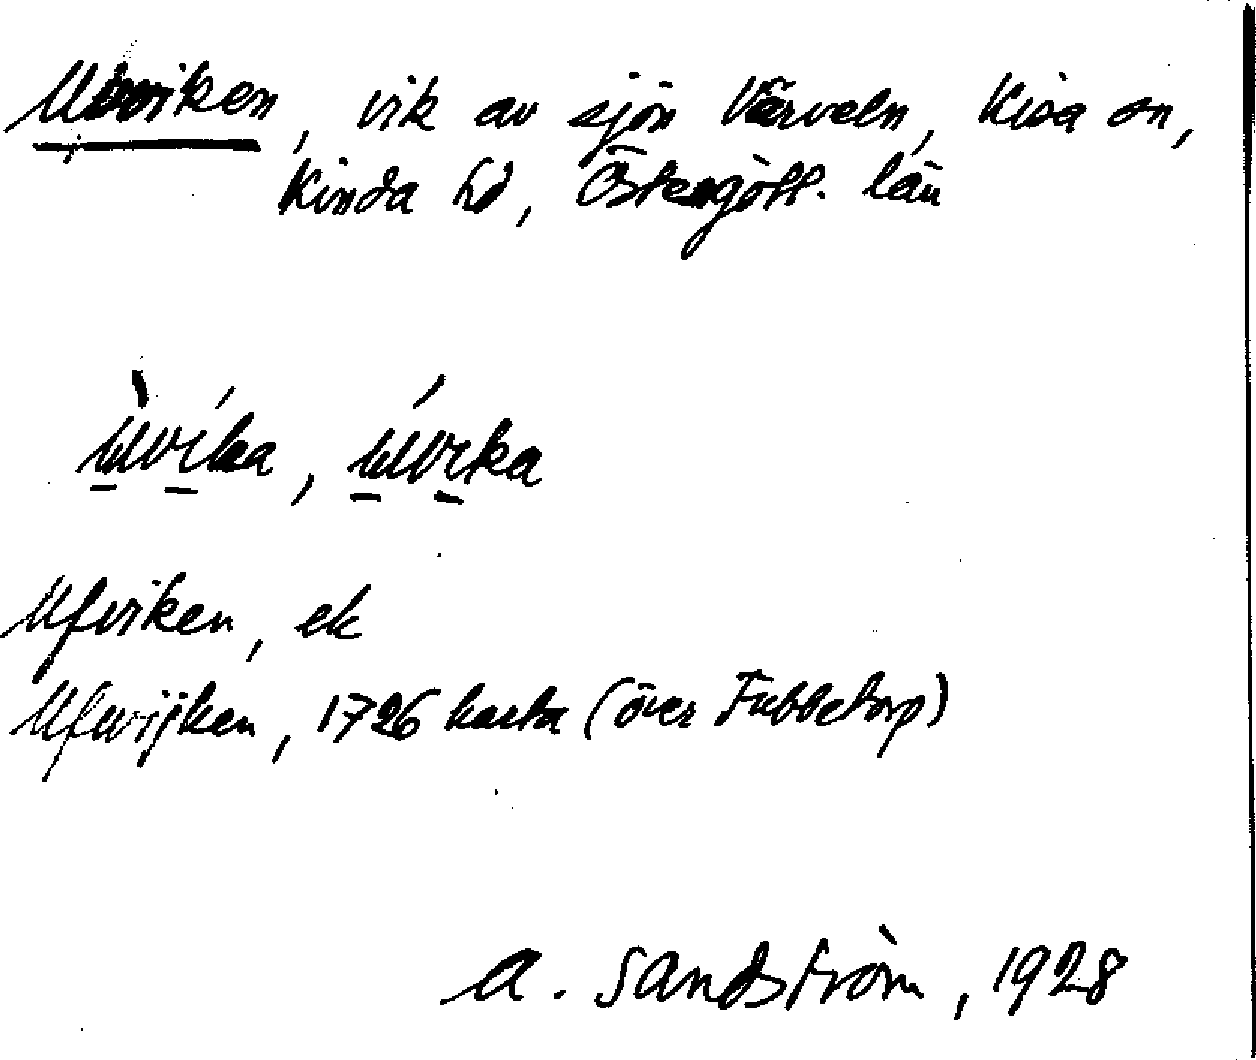 Ulvviken, vik av sjön Värveln, Kisa sn,
Kinda hd, Östergötl. län
ùlvíka, úlvika
Ulfviken, ek
Ulfwijken, 1726 karta (över Fubbetorp)
A. Sandström, 1928